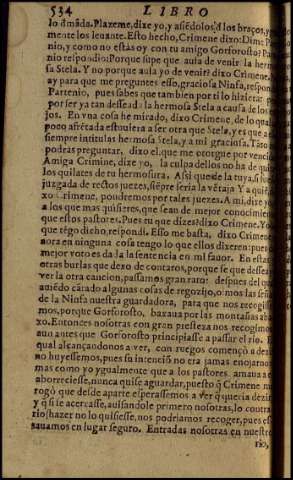 534 LIBRO
lo õmãda. Plazeme, dize yo, y asiêdolos d los braços, y
mente los leuante. Esto hecho, Crimene dixo: Dime P
nio, y como no estàs oy con tu amigo Gorforosto? Par
nio respondio: Porque supe que auia de venir la herm
sa Stela. Y no porque auia yo de venir? dixo Crimene.
ay para que me preguntes esso, graciosa Ninfa, respond
Partenio, pues sabes que tambien por ti lo hiziera? P
por ser ya tan desseada la hermosa Stela a causa de los
jos. En vna cosa he mirado, dixo Crimene, de lo qual
poco afrêtada estouiera a ser otra que Stela, y es que a
siempre intitulas hermosa Stela, y a mi graciosa. Tãto
podras preguntar, dixo el, que me otorgue por vencid
Amiga Crimine, dize yo, la culpa dellos no ha de quit
los quilates de tu hermosura. Assi que de la tuya, si fue
juzgada de rectos juezes, siêpre seria la vêtaja Y a quiê,
xo Crimene, pondremos por tales juezes. A mi, dize yo
a los que mas quisieres, que sean de mejor conocimien
que estos pastores. Pues tu que dizes? dixo Crimene. Yo
que têgo dicho, respondi. Esso me basta, dixo Crimene
nora en ninguna cosa tengo lo que ellos dixeren: pues
mejor voto es da la sentencia en mi fauor. En estas
otras burlas que dexo de contaros, porque se que dessea
ver la otra cancion, passamos gran rato: despues del qua
auiêdo cãtado algunas cosas de regozijo, oimos las señ
de la Ninfa nuestra guardadora, para que nos recogies
mos, porque Gorforosto, baxaua por las montañas aba
xo. Entonces nosotras con gran presteza nos recogimos
aun antes que Gorforosto principiasse a passar el rio. El
qual alcançandonos a ver, con ruegos començò a dezir
no huyessemos, pues su intenciõ no era jamas enojarnos
mas como yo ygualmente que a los pastores amaua a
aborreciesse, nunca quise aguardar, puesto q̃ Crimene me
rogò que desde aparte esperassemos a ver q̃ queria dezir
y q̃ si se acercasse, auisandole primero nosotras, lo contra
rio hazer no lo quisiesse, nos podriamos recoger, pues es
tauamos en lugar seguro. Entradas nosotras en nuestro
rio,